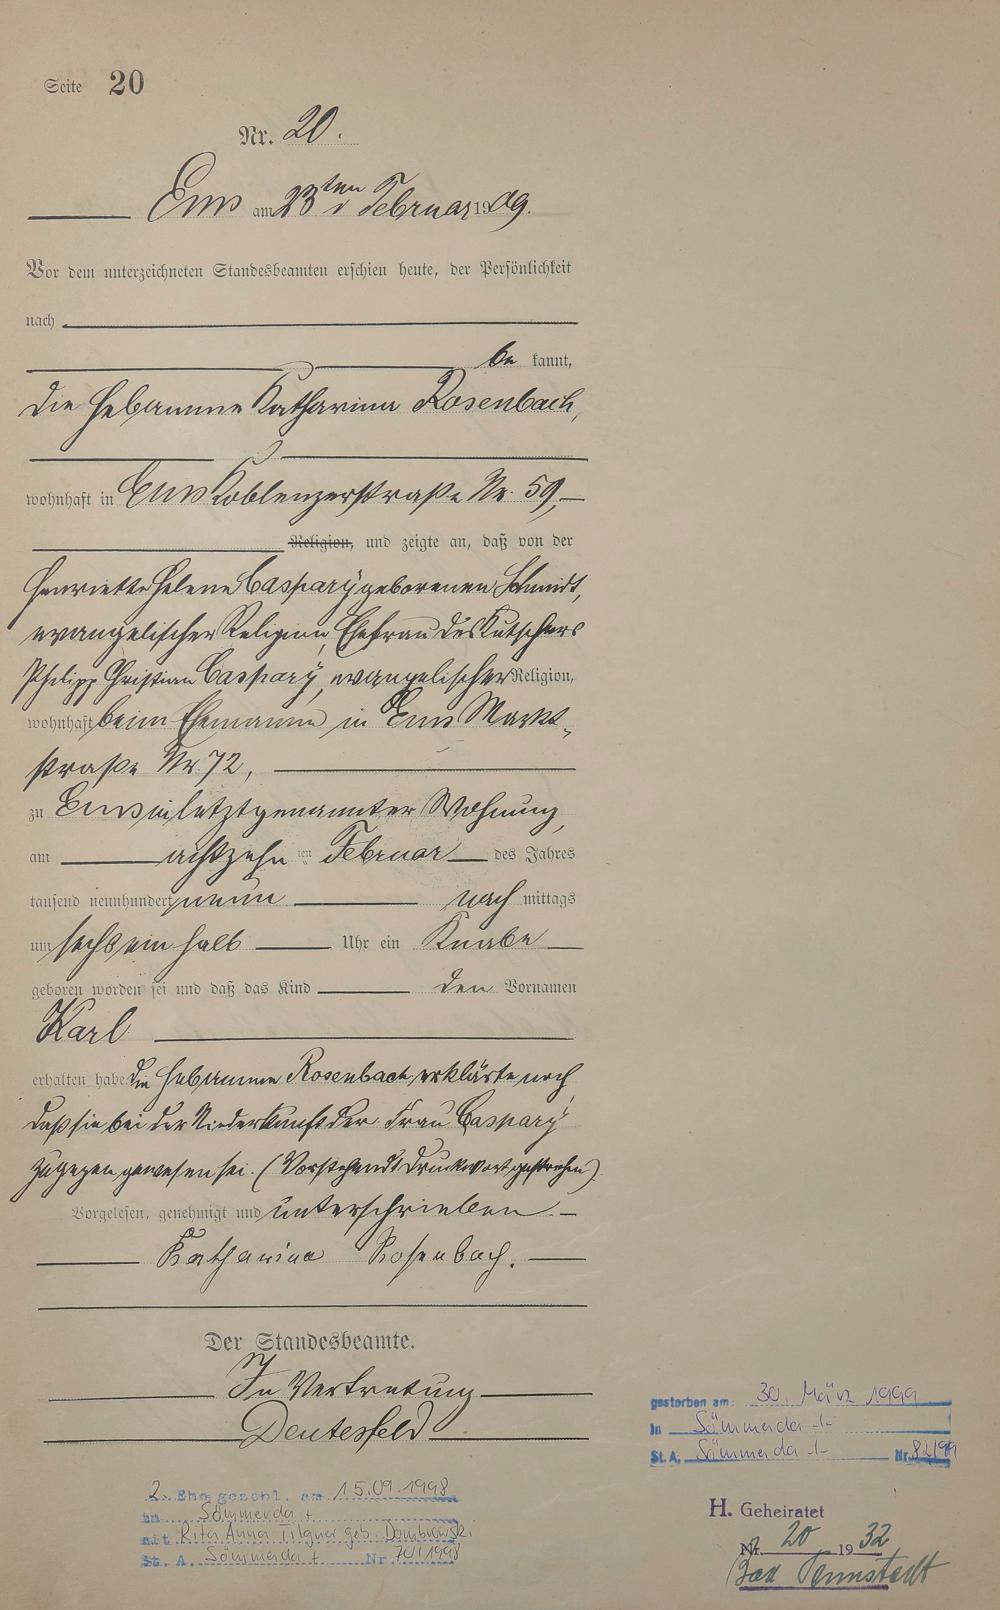 Seite 20
Nr. 20.
Ems am 23ten Februar 1909.
Vor dem unterzeichneten Standesbeamten erschien heute, der Persönlichkeit
nach
be kannt,
die Hebamme Katharina Rosenbach,
wohnhaft in Ems Koblenzerstraße Nr. 59,
Religion, und zeigte an, daß von der
Henriette Helene Caspary geborenen Schmidt,
evangelischer Religion, Ehefrau des Kutschers
Philipp Christian Caspary, evangelischer Religion,
wohnhaft beim Ehemanne in Ems Markt-
straße Nr. 72,
zu Ems in letztgenannter Wohnung,
am achtzehnten Februar des Jahres
tausend neunhundert neun nach mittags
um sechs ein halb Uhr ein Knabe
geboren worden sei und daß das Kind den Vornamen
Karl
erhalten habe. Die Hebamme Rosenbach erklärte noch,
daß sie bei der Niederkunft der Frau Caspary
zugegen gewesen sei. (Vorstehends Druckwort gestrichen)
Vorgelesen, genehmigt und unterschrieben.
Katharina Rosenbach.
Der Standesbeamte.
In Vertretung
Deutesfeld
gestorben am: 30. März 1999
in Sömmerda -/-
St. A. Sömmerda -/- Nr. 82/99
2. Ehe geschl. am 15.09.1998
in Sömmerda +
mit Rita Anna Tilgner geb. Dombrowski
St. A. Sömmerda + Nr 70/1998
H. Geheiratet
Nr. 20 1932
Bad Tennstedt